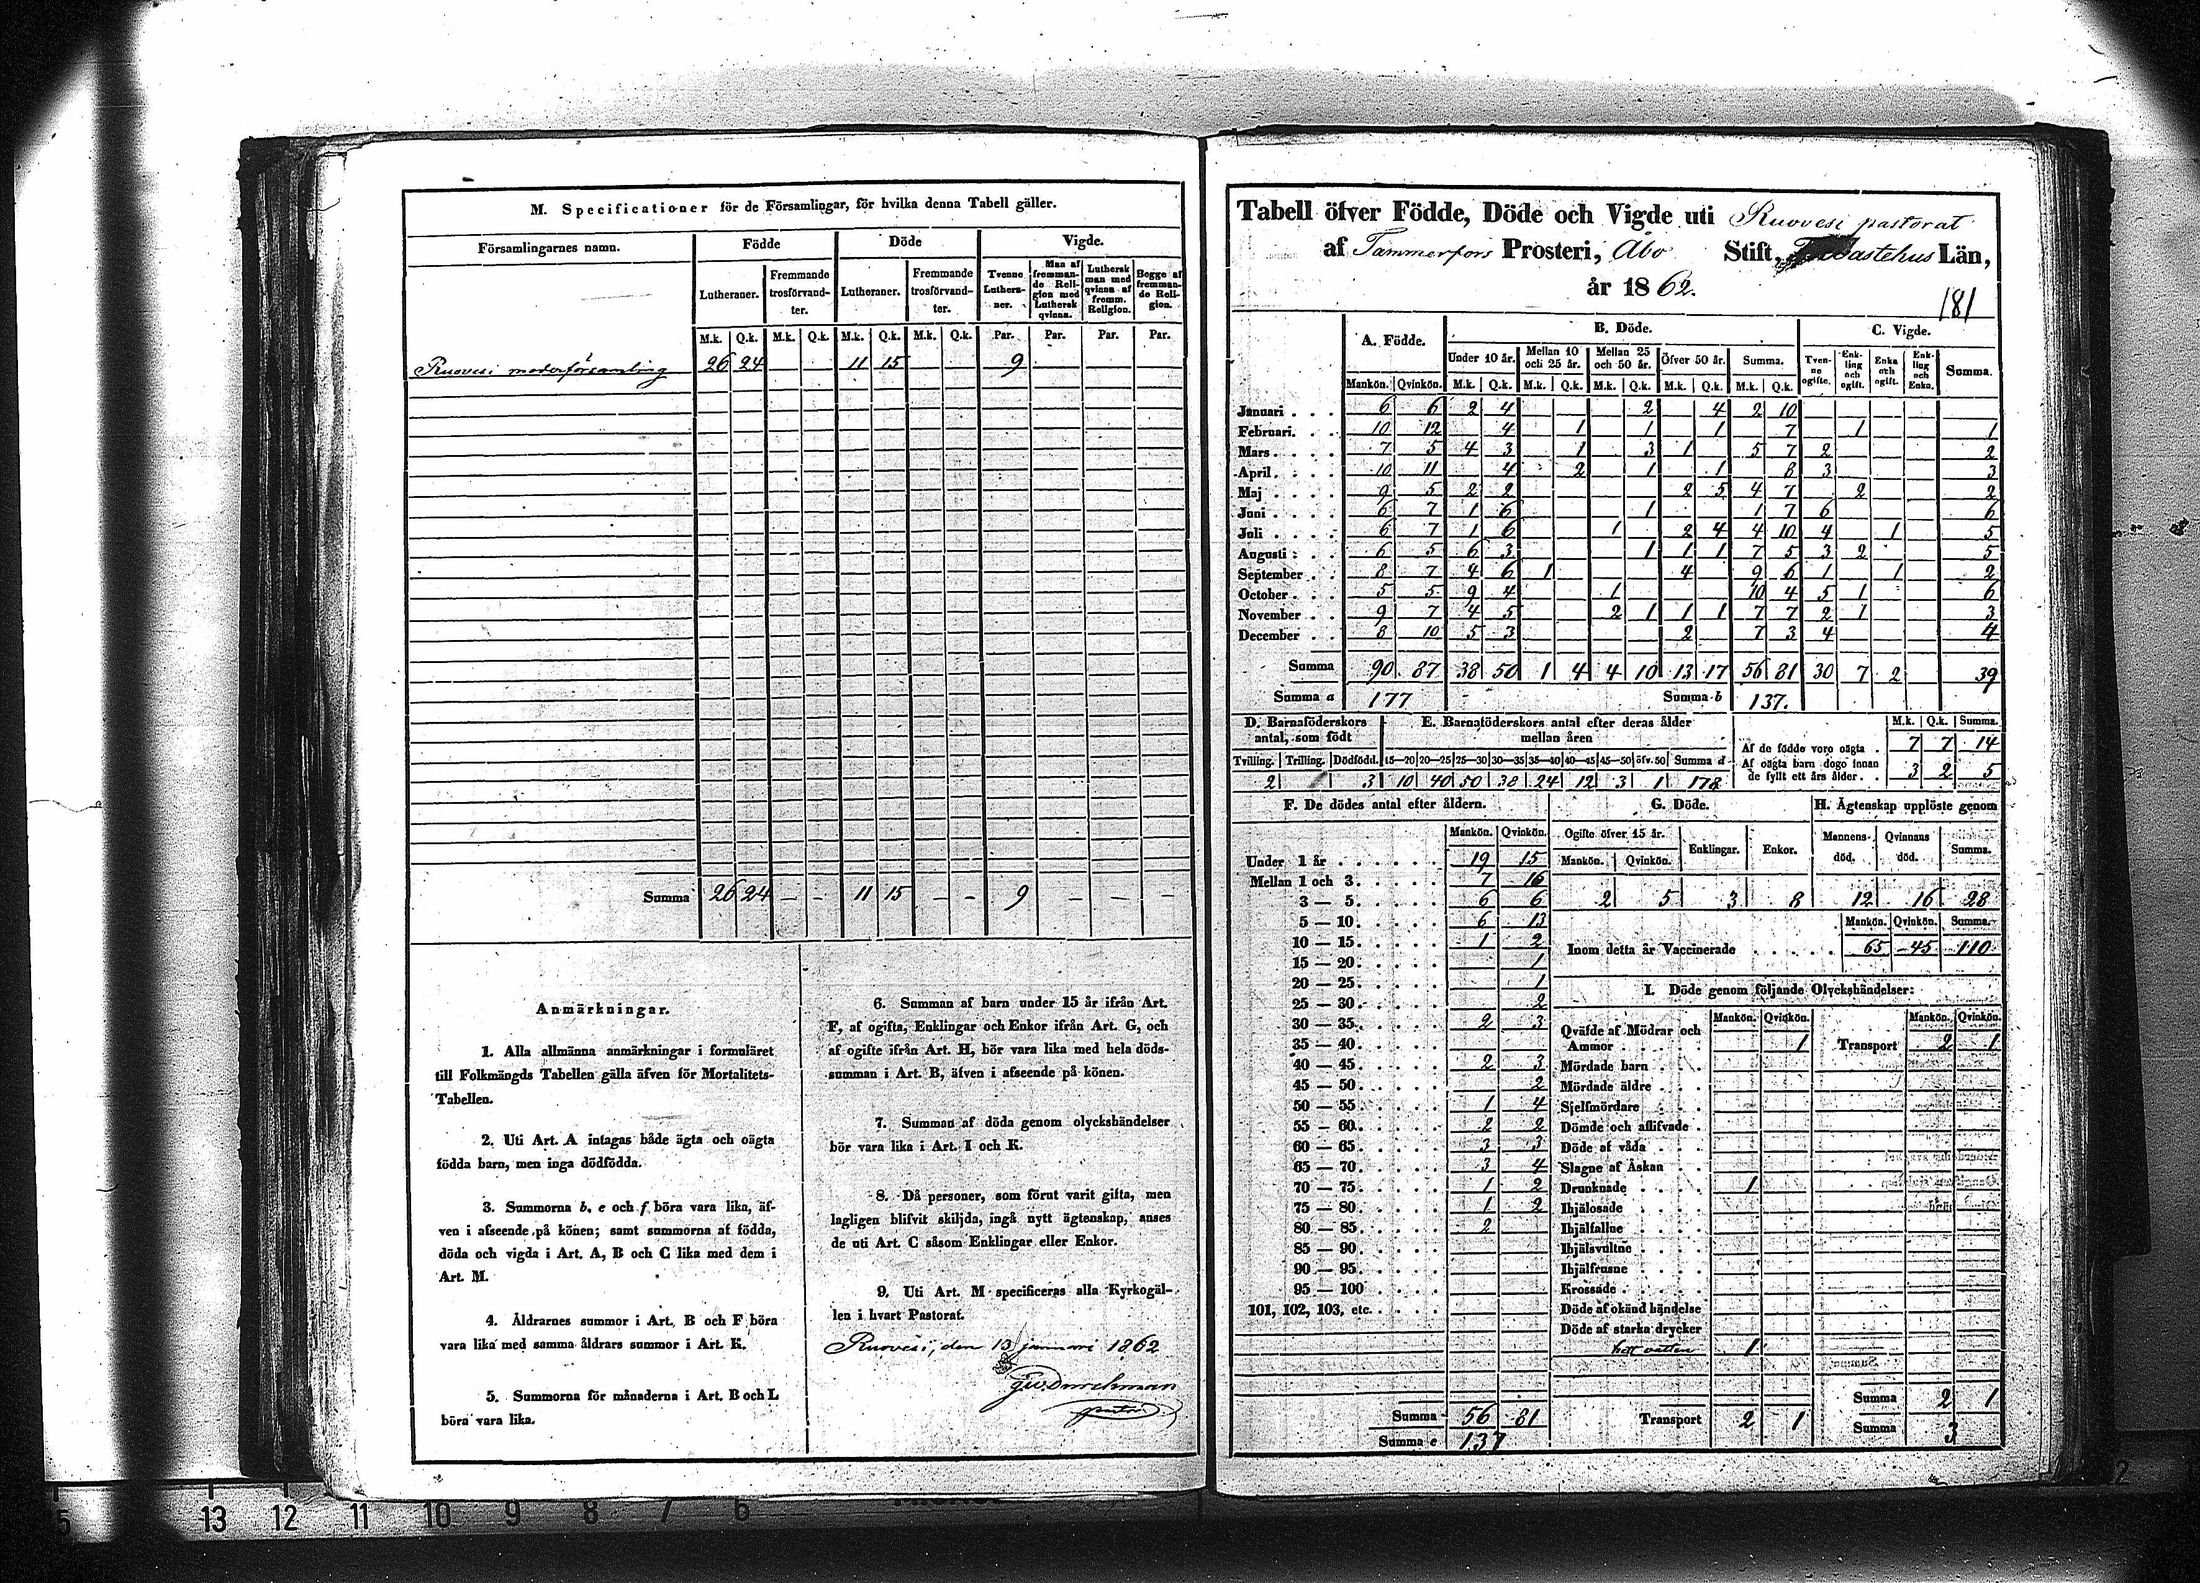 M. Specificationer för de Församlingar, för hvilka denna Tabell gäller.
Församlingarnes namn. Födde Döde Vigde.
Lutheraner. Fremmande trosförvandter. Lutheraner. Fremmande trosförvandter. Tvenne Lutheraner. Man af fremmande Religion med Luthersk qvinna. Luthersk man med qvinna af fremm. Religion. Begge af fremmande Religion.
M.k. Q.k. M.k. Q.k. M.k. Q.k. M.k. Q.k. Par. Par. Par. Par.
Ruovesi moderförsamling 26 24 11 15 9
Summa 26 24 — — 11 15 — — 9 — — —
Anmärkningar.
1. Alla allmänna anmärkningar i formuläret
till Folkmängds Tabellen gälla äfven för Mortalitets-
Tabellen.
2. Uti Art. A intagas både ägta och oägta
födda barn, men inga dödfödda.
3. Summorna b, e och f böra vara lika, äf-
ven i afseende på könen; samt summorna af födda,
döda och vigda i Art. A, B och C lika med dem i
Art. M.
4. Åldrarnes summor i Art. B och F böra
vara lika med samma åldrars summor i Art. K.
5. Summorna för månaderna i Art. B och L
böra vara lika.
6. Summan af barn under 15 år ifrån Art.
F, af ogifta, Enklingar och Enkor ifrån Art. G, och
af ogifte ifrån Art. H, bör vara lika med hela döds-
summan i Art. B, äfven i afseende på könen.
7. Summan af döda genom olyckshändelser
bör vara lika i Art. I och K.
8. Då personer, som förut varit gifta, men
lagligen blifvit skiljda, ingå nytt ägtenskap, anses
de uti Art. C såsom Enklingar eller Enkor.
9. Uti Art. M specificeras alla Kyrkogäl-
len i hvart Pastorat.
Ruovesi, den 13 januari 1862
Tabell öfver Födde, Döde och Vigde uti Ruovesi pastorat
af Tammerfors Prosteri, Åbo Stift, Tavastehus Län,
år 1862.
181
A. Födde. B. Döde. C. Vigde.
Under 10 år. Mellan 10 och 25 år. Mellan 25 och 50 år. Öfver 50 år. Summa. Tvenne ogifte. Enkling och ogift. Enka och ogift. Enkling och Enka. Summa.
Mankön. Qvinkön. M.k. Q.k. M.k. Q.k. M.k. Q.k. M.k. Q.k. M.k. Q.k.
Januari 6 6 2 4 2 4 2 10
Februari 10 12 4 1 1 1 7 1 1
Mars 7 5 4 3 1 3 1 5 7 2 2
April 10 11 4 2 1 1 8 3 3
Maj 9 5 2 2 2 5 4 7 2 2
Juni 6 7 1 6 1 1 7 6 6
Juli 6 7 1 6 1 2 4 4 10 4 1 5
Augusti 6 5 6 3 1 1 1 7 5 3 2 5
September 8 7 4 6 1 4 9 6 1 1 2
October 5 5 9 4 1 10 4 5 1 6
November 9 7 4 5 2 1 1 1 7 7 2 1 3
December 8 10 5 3 2 7 3 4 4
Summa 90 87 38 50 1 4 4 10 13 17 56 81 30 7 2 39
Summa a 177 Summa b 137.
D. Barnaföderskors antal, som födt
Tvilling. Trilling. Dödfödd.
2 3
E. Barnaföderskors antal efter deras ålder mellan åren
15—20 20—25 25—30 30—35 35—40 40—45 45—50 öfv. 50 Summa d
10 40 50 38 24 12 3 1 178
M.k. Q.k. Summa.
Af de födde voro oägta 7 7 14
Af oägta barn dogo innan de fyllt ett års ålder 3 2 5
F. De dödes antal efter åldern.
Mankön. Qvinkön.
Under 1 år 19 15
Mellan 1 och 3 7 16
3 — 5 6 6
5 — 10 6 13
10 — 15 1 2
15 — 20 1
20 — 25 1
25 — 30 2
30 — 35 2 3
35 — 40
40 — 45 2 3
45 — 50 2
50 — 55 1 4
55 — 60 2 2
60 — 65 3 3
65 — 70 3 4
70 — 75 1 2
75 — 80 1 2
80 — 85 2
85 — 90
90 — 95
95 — 100
101, 102, 103, etc.
Summa 56 81
Summa e 137
G. Döde.
Ogifte öfver 15 år. Enklingar. Enkor.
Mankön. Qvinkön.
2 5 3 8
H. Ägtenskap upplöste genom
Mannens död. Qvinnans död. Summa.
12 16 28
Mankön. Qvinkön. Summa.
Inom detta år Vaccinerade 65 45 110
I. Döde genom följande Olyckshändelser:
Mankön. Qvinkön. Mankön. Qvinkön.
Qväfde af Mödrar och Ammor 1 Transport 2 1
Mördade barn
Mördade äldre
Sjelfmördare
Dömde och aflifvade
Döde af våda
Slagne af Åskan
Drunknade 1
Ihjälosade
Ihjälfallne
Ihjälsvultne
Ihjälfrusne
Krossade
Döde af okänd händelse
Döde af starka drycker
hett vatten 1
Summa 2 1
Transport 2 1 Summa 3